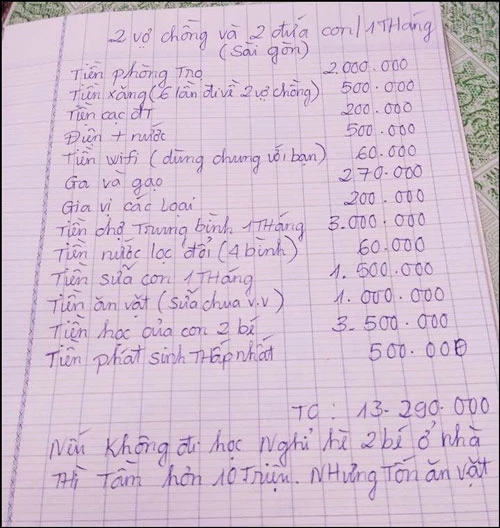 2 vợ chồng và 2 đứa con/1 THáng
(Sài gòn)
Tiền phòng Trọ 2.000.000
Tiền xăng (6 lần đi về 2 vợ chồng) 500.000
Tiền cạc đT 200.000
Điện + nước 500.000
Tiền wifi (dùng chung với bạn) 60.000
Ga và gạo 270.000
Gia vị các loại 200.000
Tiền chợ Trung bình 1 THáng 3.000.000
Tiền nước lọc đổi (4 bình) 60.000
Tiền sữa con 1 THáng 1.500.000
Tiền ăn vặt (Sữa chua v.v) 1.000.000
Tiền học của con 2 bé 3.500.000
Tiền phát sinh THấp nhất 500.000
TC: 13.290.000
Nếu Không đi học Nghỉ hè 2 bé ở nhà
THì Tầm hơn 10 Triệu. NHưng Tốn ăn vặt